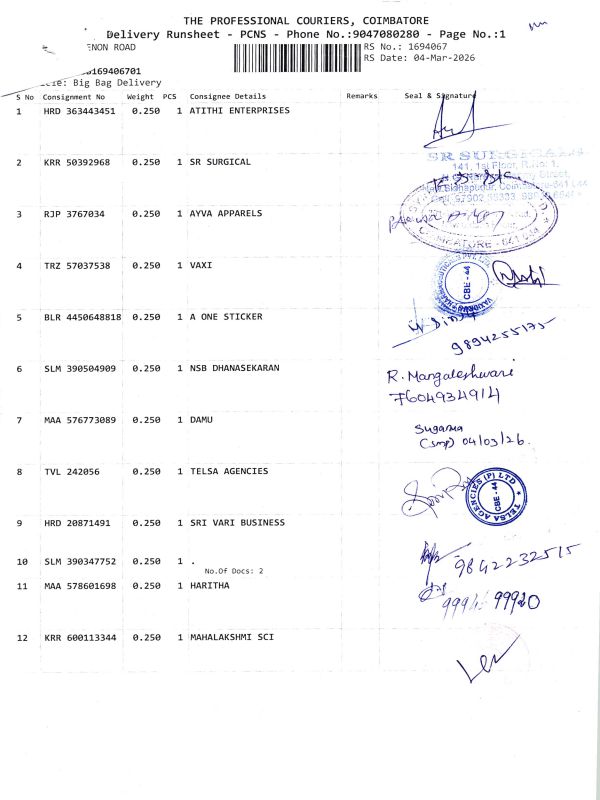 THE PROFESSIONAL COURIERS, COIMBATORE
Delivery Runsheet - PCNS - Phone No.:9047080280 - Page No.:1
ENON ROAD
RS No.: 1694067
RS Date: 04-Mar-2026
169406701
Big Bag Delivery
S No Consignment No Weight PCS Consignee Details Remarks Seal & Signature
1 HRD 363443451 0.250 1 ATITHI ENTERPRISES
2 KRR 50392968 0.250 1 SR SURGICAL
SR SURGICALS
141, 1st Floor, R.No: 1,
3 RJP 3767034 0.250 1 AYVA APPARELS
COIMBATORE - 641
4 TRZ 57037538 0.250 1 VAXI
CBE - 44
5 BLR 4450648818 0.250 1 A ONE STICKER
9894255175
6 SLM 390504909 0.250 1 NSB DHANASEKARAN
R. Mangaleshwari
7604934914
7 MAA 576773089 0.250 1 DAMU
Suganya
04/03/26.
8 TVL 242056 0.250 1 TELSA AGENCIES
TELSA AGENCIES (P) LTD
CBE - 44
9 HRD 20871491 0.250 1 SRI VARI BUSINESS
10 SLM 390347752 0.250 1 .
No.Of Docs: 2
9842232515
11 MAA 578601698 0.250 1 HARITHA
99920
12 KRR 600113344 0.250 1 MAHALAKSHMI SCI